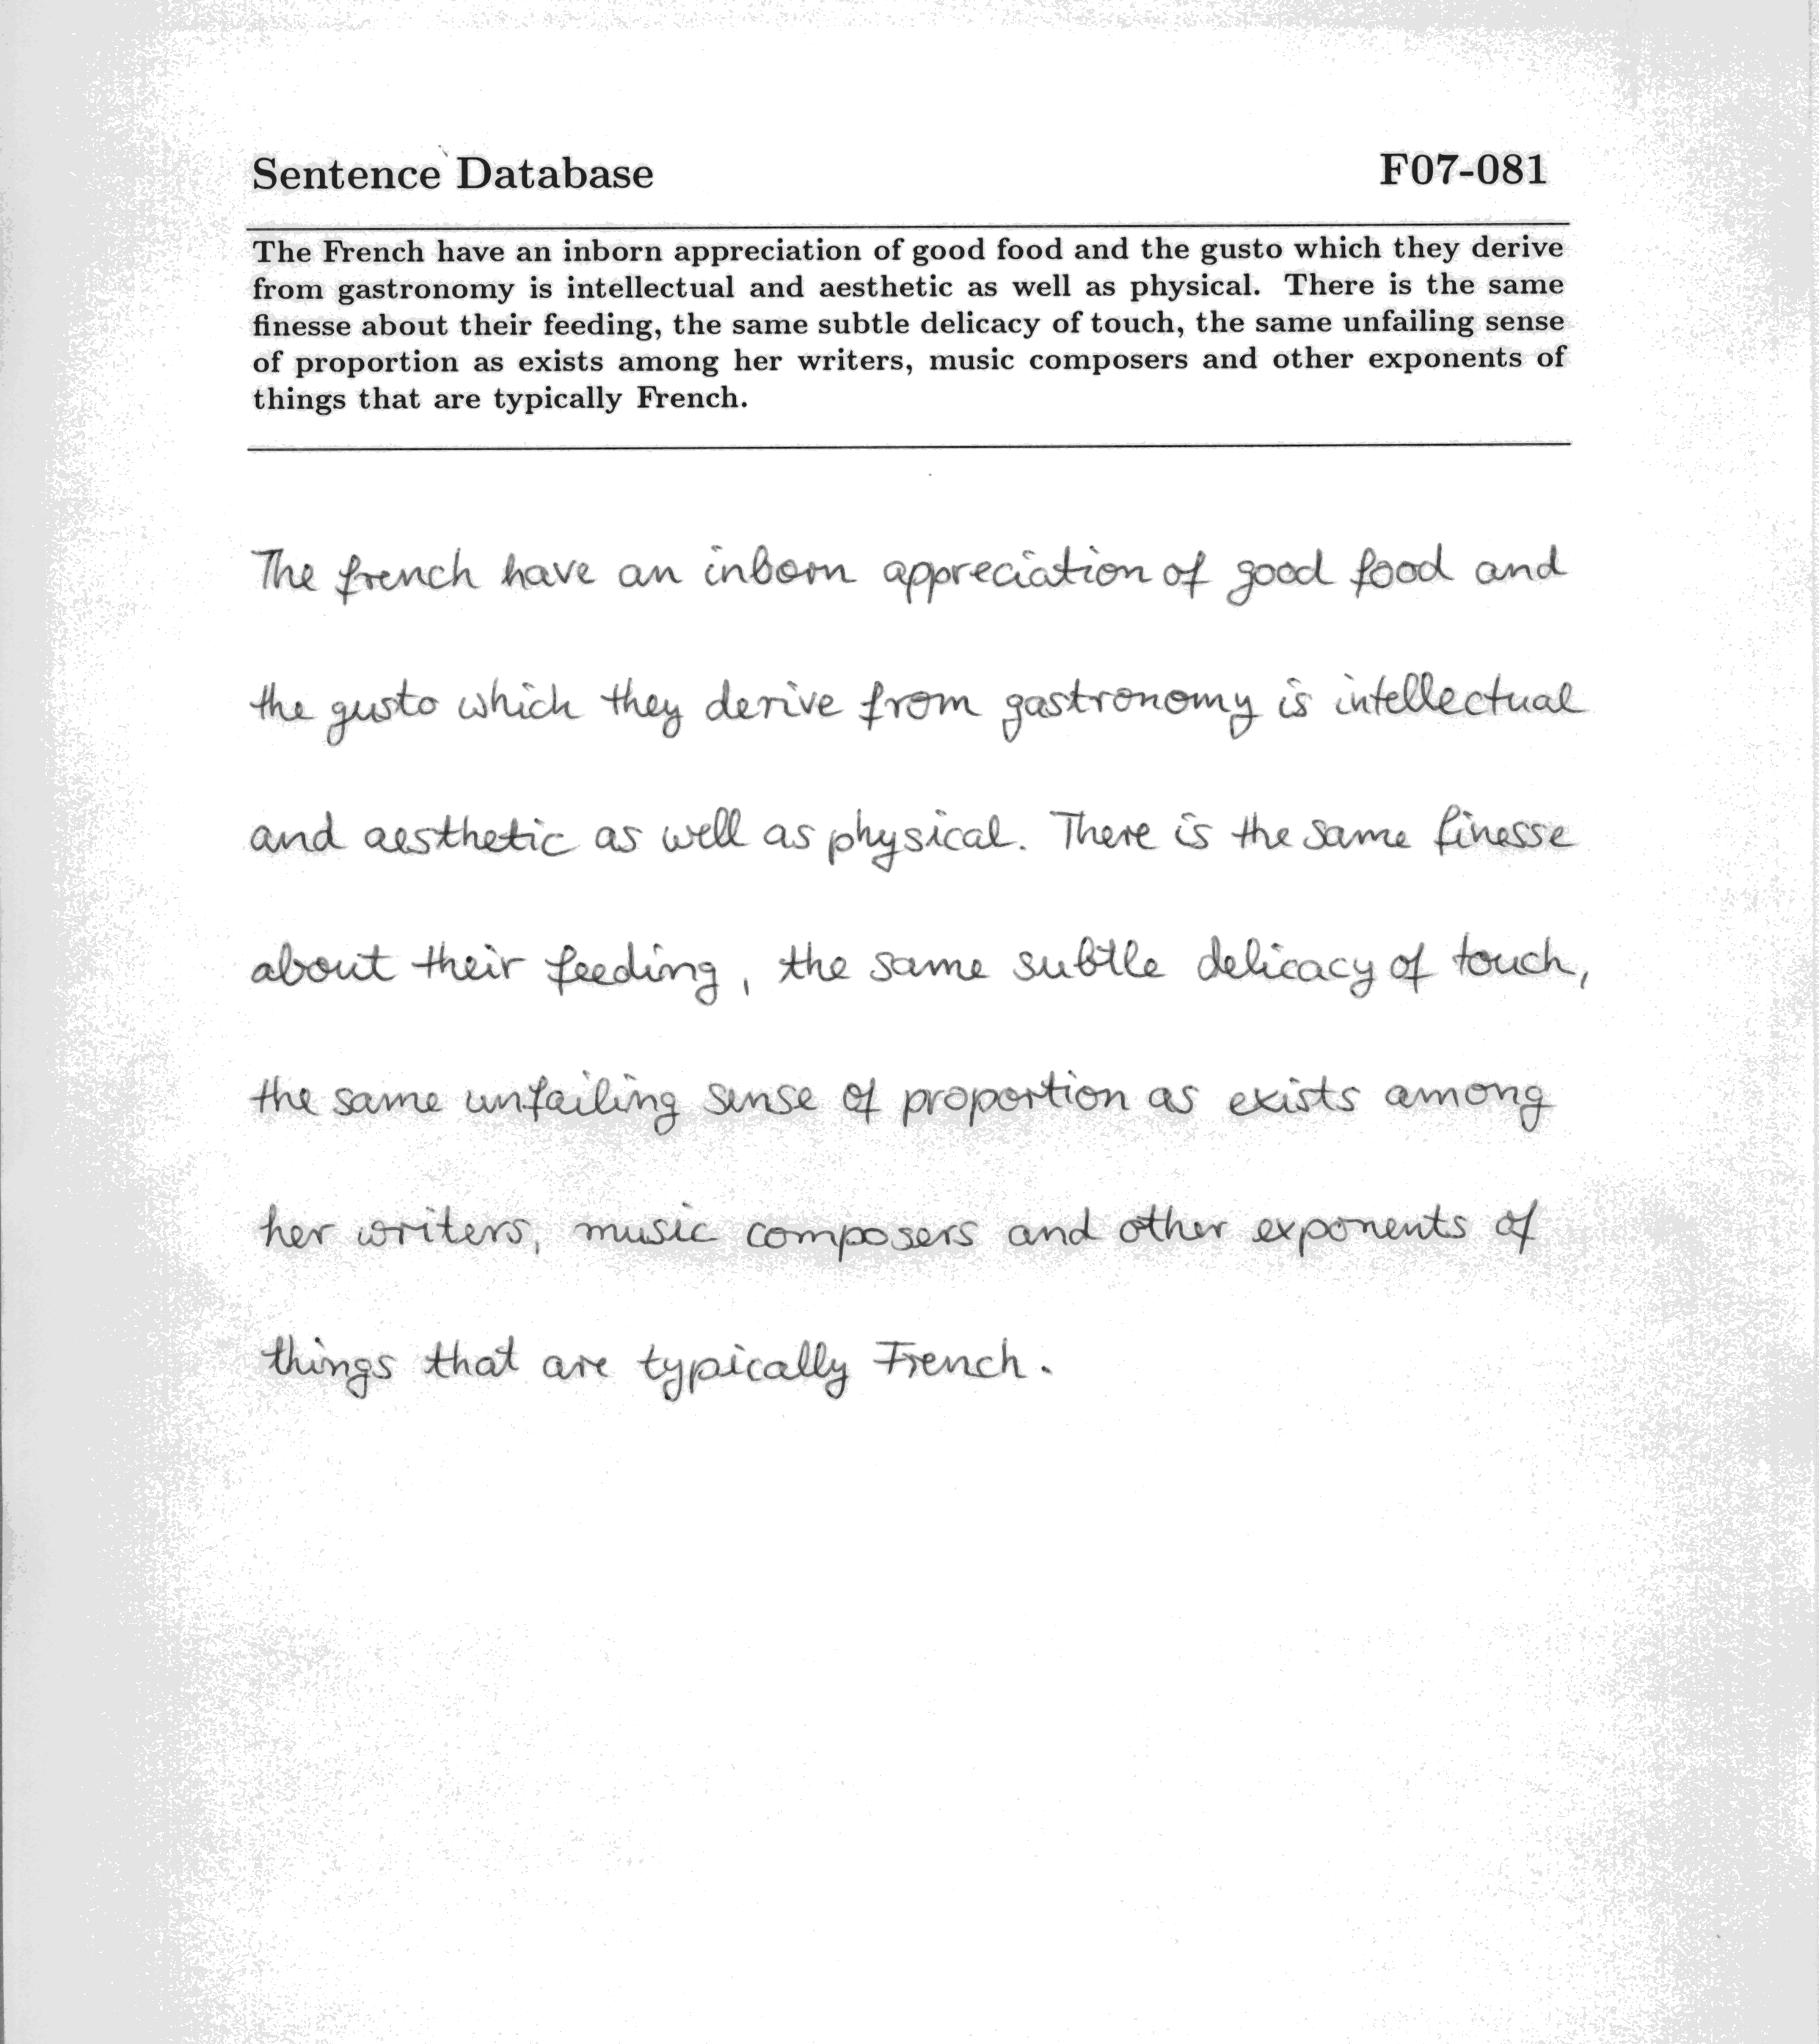 Sentence Database F07-081
The French have an inborn appreciation of good food and the gusto which they derive
from gastronomy is intellectual and aesthetic as well as physical. There is the same
finesse about their feeding, the same subtle delicacy of touch, the same unfailing sense
of proportion as exists among her writers, music composers and other exponents of
things that are typically French.
The french have an inborn appreciation of good food and
the gusto which they derive from gastronomy is intellectual
and aesthetic as well as physical. There is the same finesse
about their feeding, the same subtle delicacy of touch,
the same unfailing sense of proportion as exists among
her writers, music composers and other exponents of
things that are typically French.